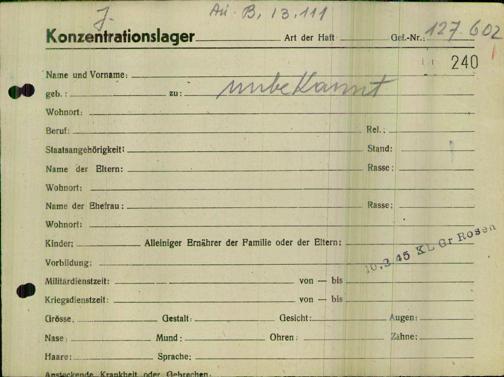 J. Au. B, 13.111
Konzentrationslager Art der Haft Gef.-Nr.: 127.602
240
Name und Vorname:
geb.: zu: unbekannt
Wohnort:
Beruf: Rel.:
Staatsangehörigkeit: Stand:
Name der Eltern: Rasse:
Wohnort:
Name der Ehefrau: Rasse:
Wohnort:
Kinder: Alleiniger Ernährer der Familie oder der Eltern:
Vorbildung: 10.2.45 KL Gr Rosen
Militärdienstzeit: von — bis
Kriegsdienstzeit: von — bis
Grösse: Gestalt: Gesicht: Augen:
Nase: Mund: Ohren: Zähne:
Haare: Sprache:
Ansteckende Krankheit oder Gebrechen: